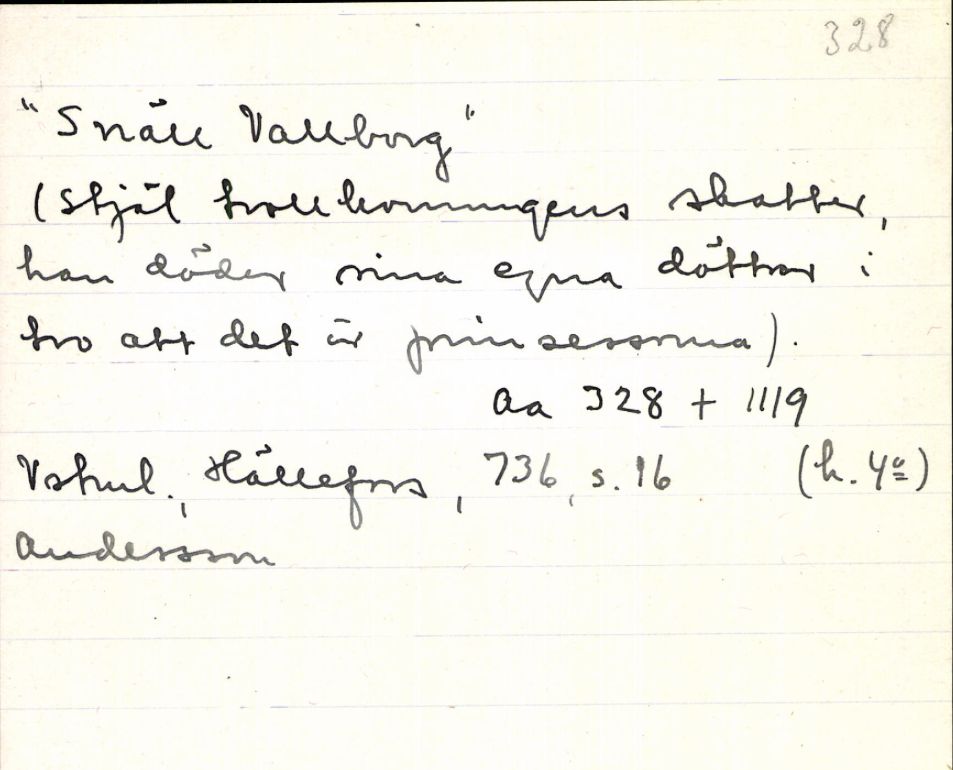 328
"Snäll Vallborg"
(Stjäl trollkonungens skatter,
han döder sina egna döttrar i
tro att det är prinsessorna).
Aa 328 + 1119
Vstml., Hällefors, 736, s. 16 (h. 4º)
Andersson